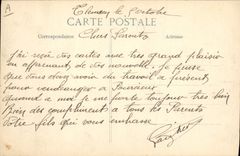 A
Clemery le 5 octobre
CARTE POSTALE
Correspondance Adresse
Chers Parents
J'ai reçu des cartes avec très grand plaisir
en apprenant de vos nouvelles. Je pense
que vous devez avoir du travail à présent
pour vendanger à
quand à moi je me porte toujours très bien
Bien des compliments à tous les Parents
Votre fils qui vous embrasse